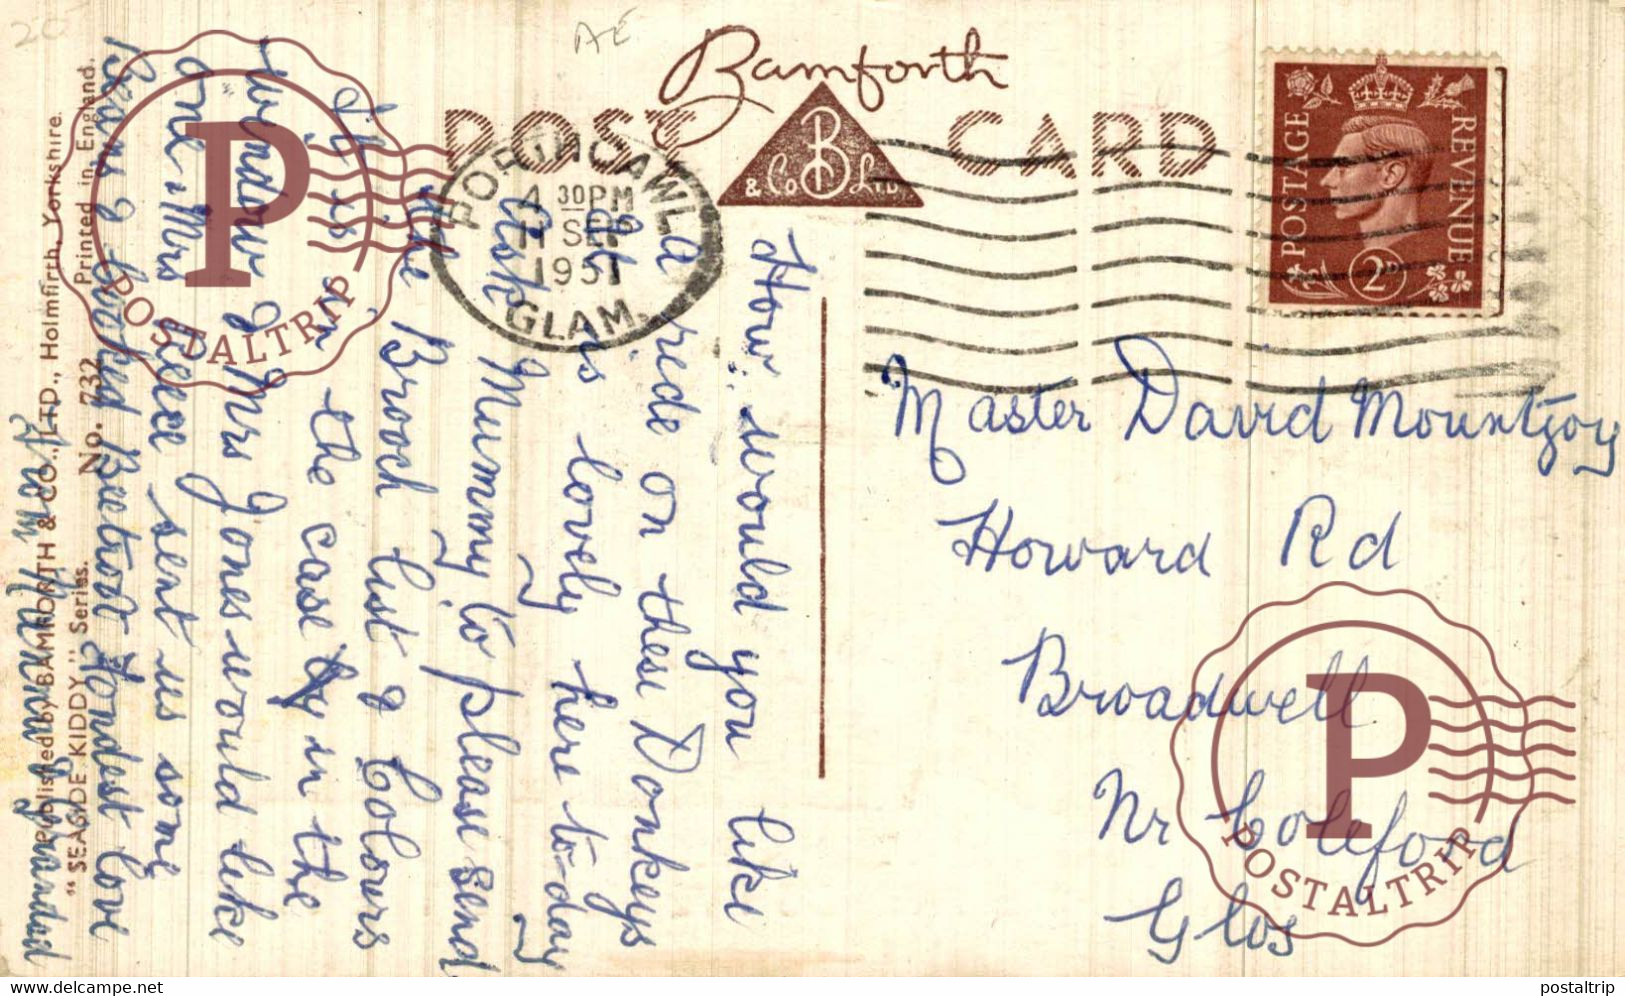 20
AE
Bamforth
POST CARD
B
& Co LTD
PORTHCAWL
4 30 PM
11 SEP
1951
GLAM.
POSTAGE REVENUE
2D
How would you like
a ride on these Donkeys
It is lovely here to-day
Ask Mummy to please send
the Brooch list & Colours
It is in the case in the
window & Mrs Jones would like
one. Mrs sent us some
Beans & Cooked Beetroot Fondest love
from Nannie & Grandad
Published by BAMFORTH & CO., LTD., Holmfirth, Yorkshire.
"SEASIDE KIDDY" Series. No. 732 Printed in England.
Master David Mountjoy
Howard Rd
Broadwell
Nr Coleford
Glos
P
POSTALTRIP
P
POSTALTRIP
delcampe.net
postaltrip